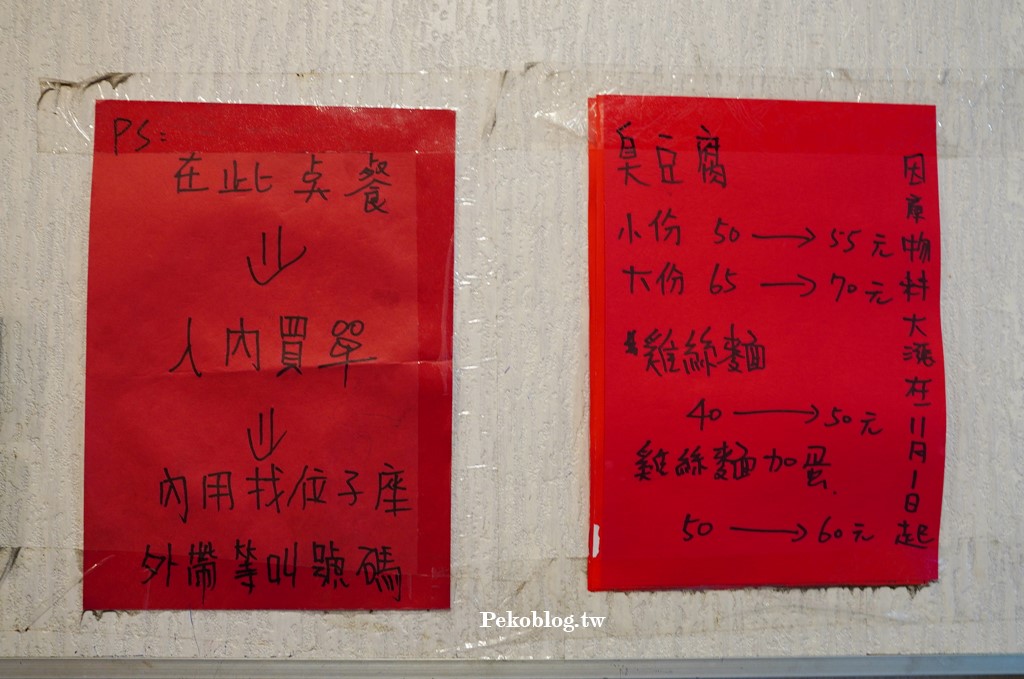 PS:
在此点餐
↓
人內買單
↓
內用找位子座
外帶等叫號碼
臭豆腐
小份 50 → 55元
大份 65 → 70元
*雞絲麵
40 → 50元
雞絲麵加蛋
50 → 60元
因原物料大漲在11月1日起
Pekoblog.tw